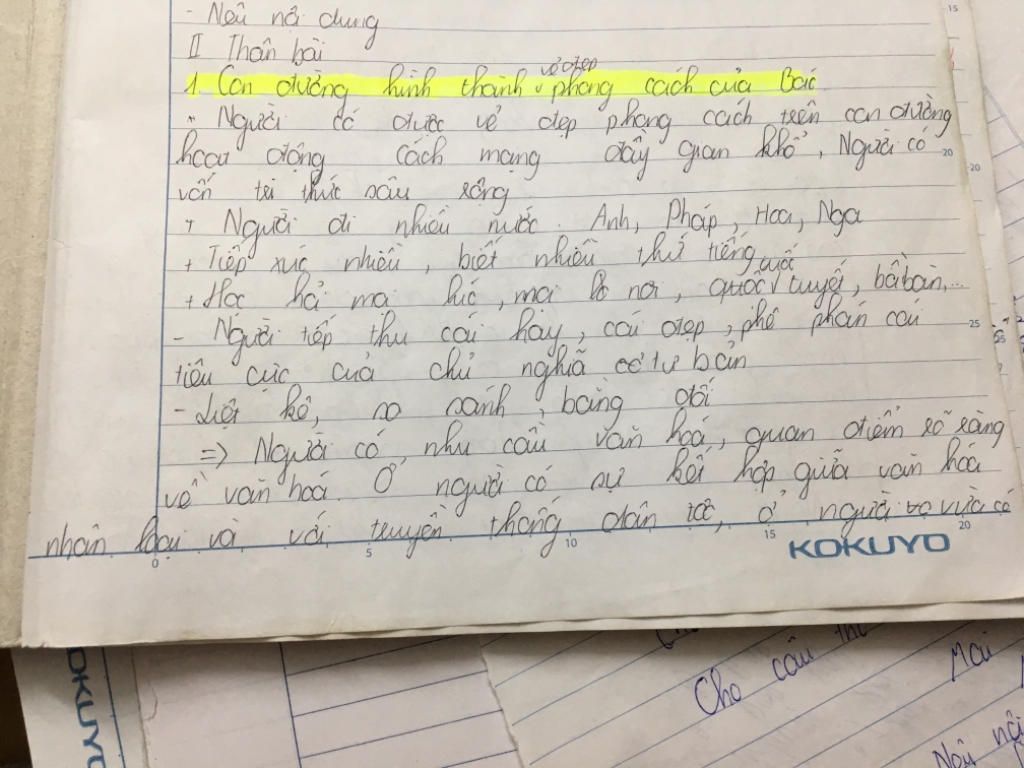 - Nêu nội dung
II Thân bài
1. Con đường hình thành v vẻ đẹp phong cách của Bác
- Người có được vẻ đẹp phong cách trên con đường
hoạt động cách mạng đầy gian khổ, Người có
vốn tri thức sâu rộng
+ Người đi nhiều nước. Anh, Pháp, Hoa, Nga
+ Tiếp xúc nhiều, biết nhiều thứ tiếng
+ Học hỏi mọi lúc, mọi nơi, cuốc tuyết, bồi bàn,...
- Người tiếp thu cái hay, cái đẹp, phê phán cái
tiêu cực của chủ nghĩa tư bản
- Liệt kê, so sánh, bằng đối
=> Người có nhu cầu văn hoá, quan điểm rõ ràng
về văn hoá. Ở người có sự kết hợp giữa văn hoá
nhân loại và với truyền thống dân tộc, ở người vừa có
0 5 10 15 20
KOKUYO
15
20
20
25
25
KOKUYO
Cho câu th
Mai
Nêu nội